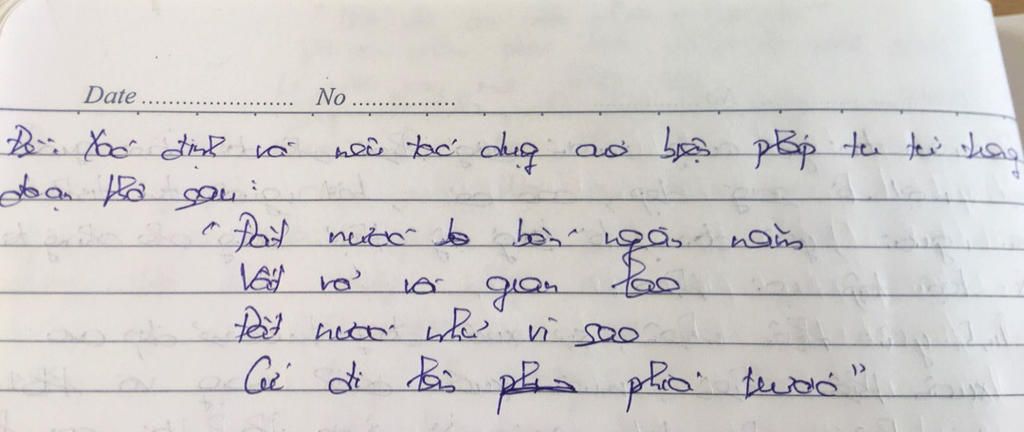 Date ...................... No ................
Đề: Xác định và nêu tác dụng của biện pháp tu từ trong
đoạn thơ sau:
"Đất nước bốn ngàn năm
Vất vả và gian lao
Đất nước như vì sao
Cứ đi lên phía trước"